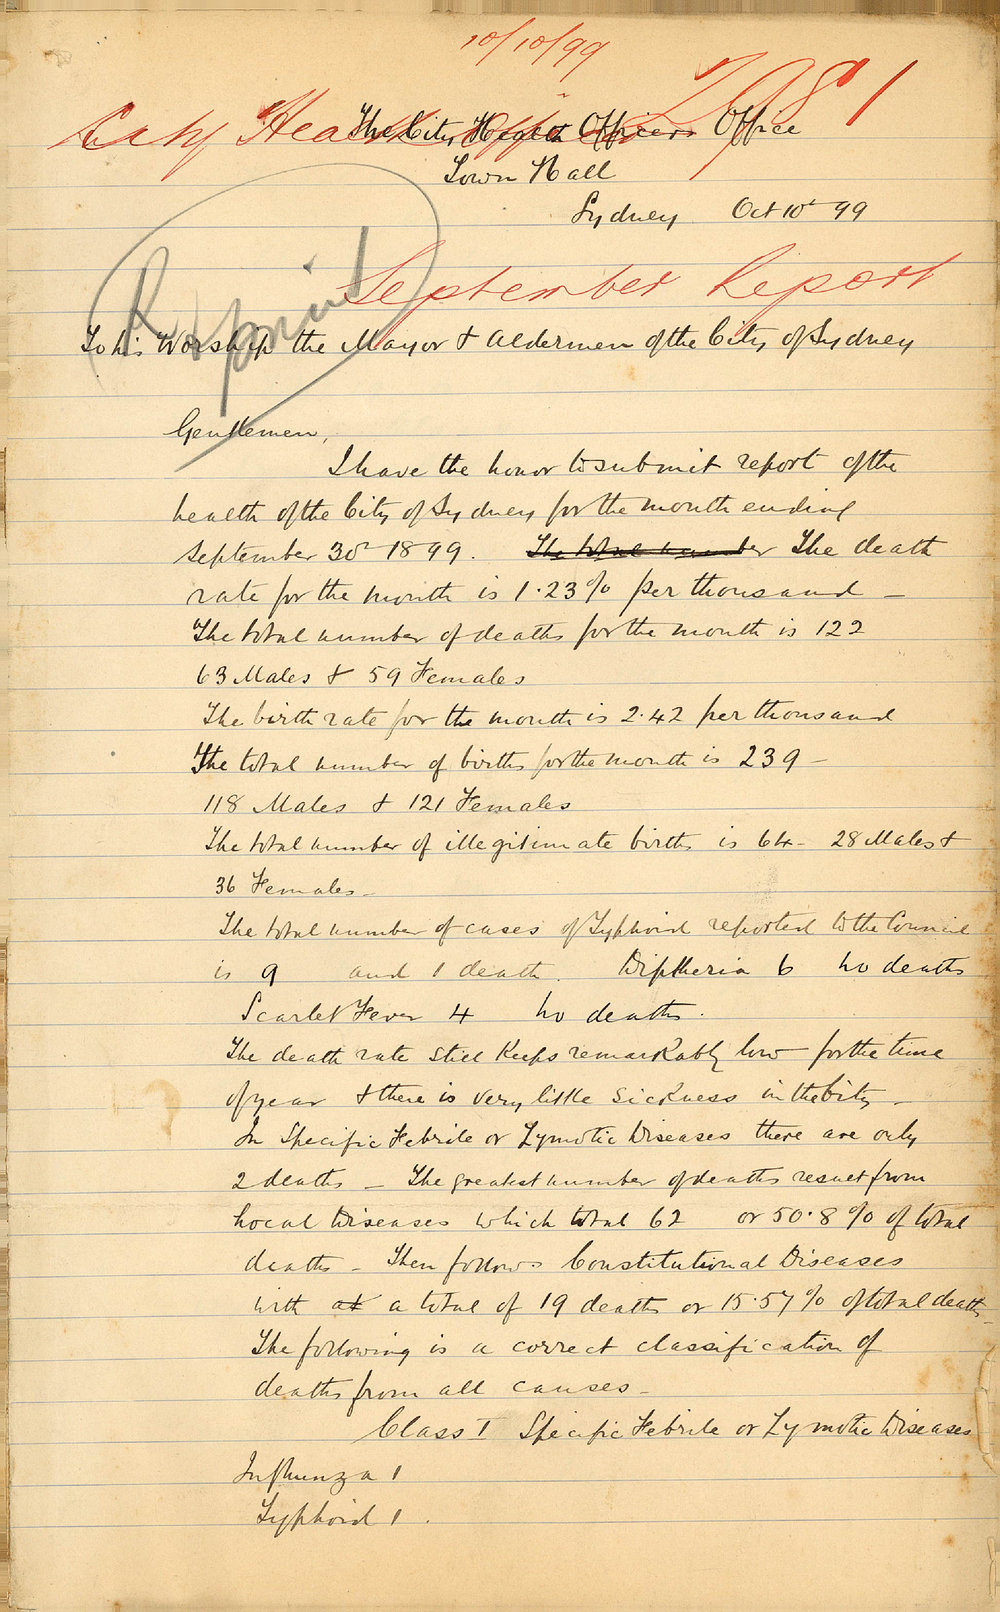 10/10/99
City Health Officer 2981
The City Health Officers Office
Town Hall
Sydney Oct 10th 99
September Report
To his Worship the Mayor & Aldermen of the City of Sydney
Gentlemen,
I have the honor to submit report of the
health of the City of Sydney for the month ending
September 30th 1899. The total number The death
rate for the month is 1.23% per thousand –
The total number of deaths for the month is 122
63 Males & 59 Females
The birth rate for the month is 2.42 per thousand
The total number of births for the month is 239 –
118 Males & 121 Females
The total number of illegitimate births is 64 – 28 Males &
36 Females –
The total number of cases of Typhoid reported to the Council
is 9 and 1 death. Diptheria 6 no deaths
Scarlet Fever 4 no deaths.
The death rate still keeps remarkably low for the time
of year & there is very little sickness in the City –
In Specific Febrile or Zymotic Diseases there are only
2 deaths – The greatest number of deaths result from
Local Diseases which total 62 or 50.8% of total
deaths – Then follows Constitutional Diseases
with at a total of 19 deaths or 15.57% of total deaths –
The following is a correct classification of
deaths from all causes –
Class I Specific Febrile or Zymotic Diseases
Influenza 1
Typhoid 1.